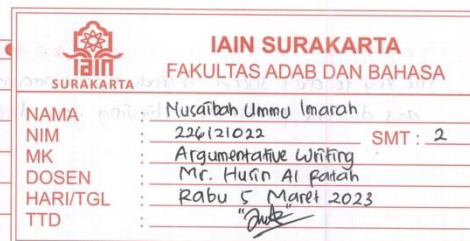 iain
SURAKARTA
IAIN SURAKARTA
FAKULTAS ADAB DAN BAHASA
NAMA : Musaibah Ummu Imarah
NIM : 226121022 SMT : 2
MK : Argumentative Writing
DOSEN : Mr. Husin Al Fatah
HARI/TGL : Rabu 5 Maret 2023
TTD :